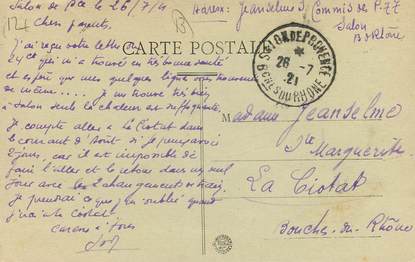 Salon de Pce le 26/7/21
Chers parents
J'ai reçu votre lettre du
24 ct qui m'a trouvé en très bonne santé
et espère que mes quelques lignes vous trouveront
de même.... Je me trouve très bien
à Salon seule la chaleur est suffoquante.
Je compte aller à la Ciotat dans
le courant d'Août si je peux avoir
2 jours, car il est impossible de
faire l'aller et le retour dans un seul
jour avec les
Je prendrai ce que j'ai oublié quand
j'irai à la Ciotat.
à tous
CARTE POSTALE
Jeanselme J, Commis de P.TT
Salon
B du Rhône
SALON DE PROVENCE
26 -7
21
BCHES DU RHÔNE
Madame Jeanselme
Ste Marguerite
La Ciotat
Bouches-du-Rhône